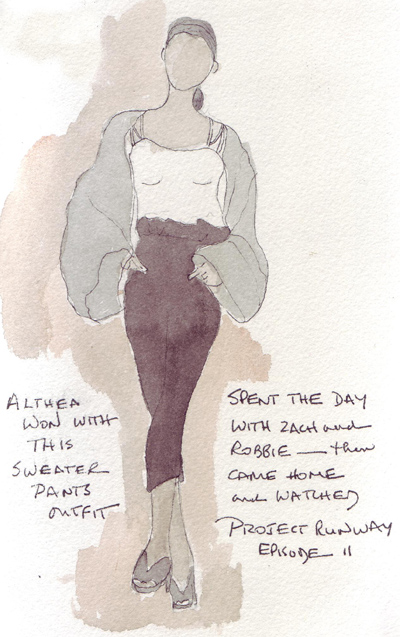 ALTHEA
WON WITH
THIS
SWEATER
PANTS
OUTFIT
SPENT THE DAY
WITH ZACH and
ROBBIE — then
CAME HOME
and WATCHED
PROJECT RUNWAY
EPISODE 11